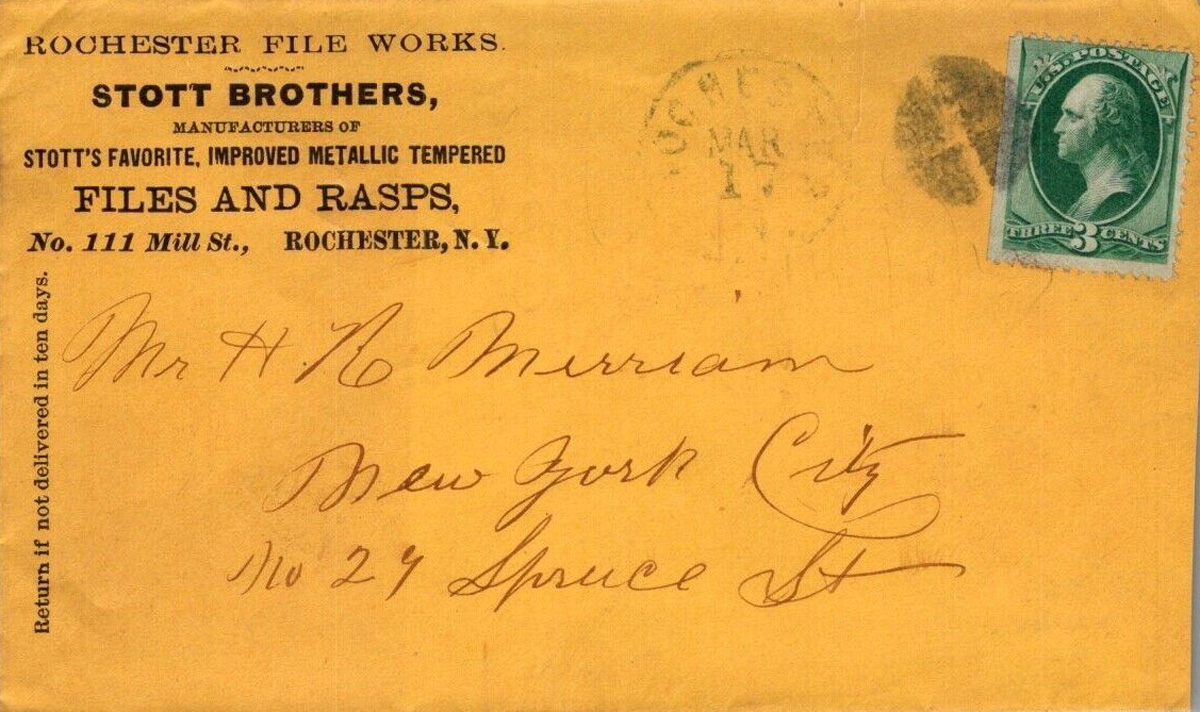 ROCHESTER FILE WORKS.
STOTT BROTHERS,
MANUFACTURERS OF
STOTT'S FAVORITE, IMPROVED METALLIC TEMPERED
FILES AND RASPS,
No. 111 Mill St., ROCHESTER, N. Y.
Return if not delivered in ten days.
ROCHESTER
MAR
17
U.S. POSTAGE
THREE 3 CENTS
Mr H. R Merriam
New York City
No 27 Spruce St